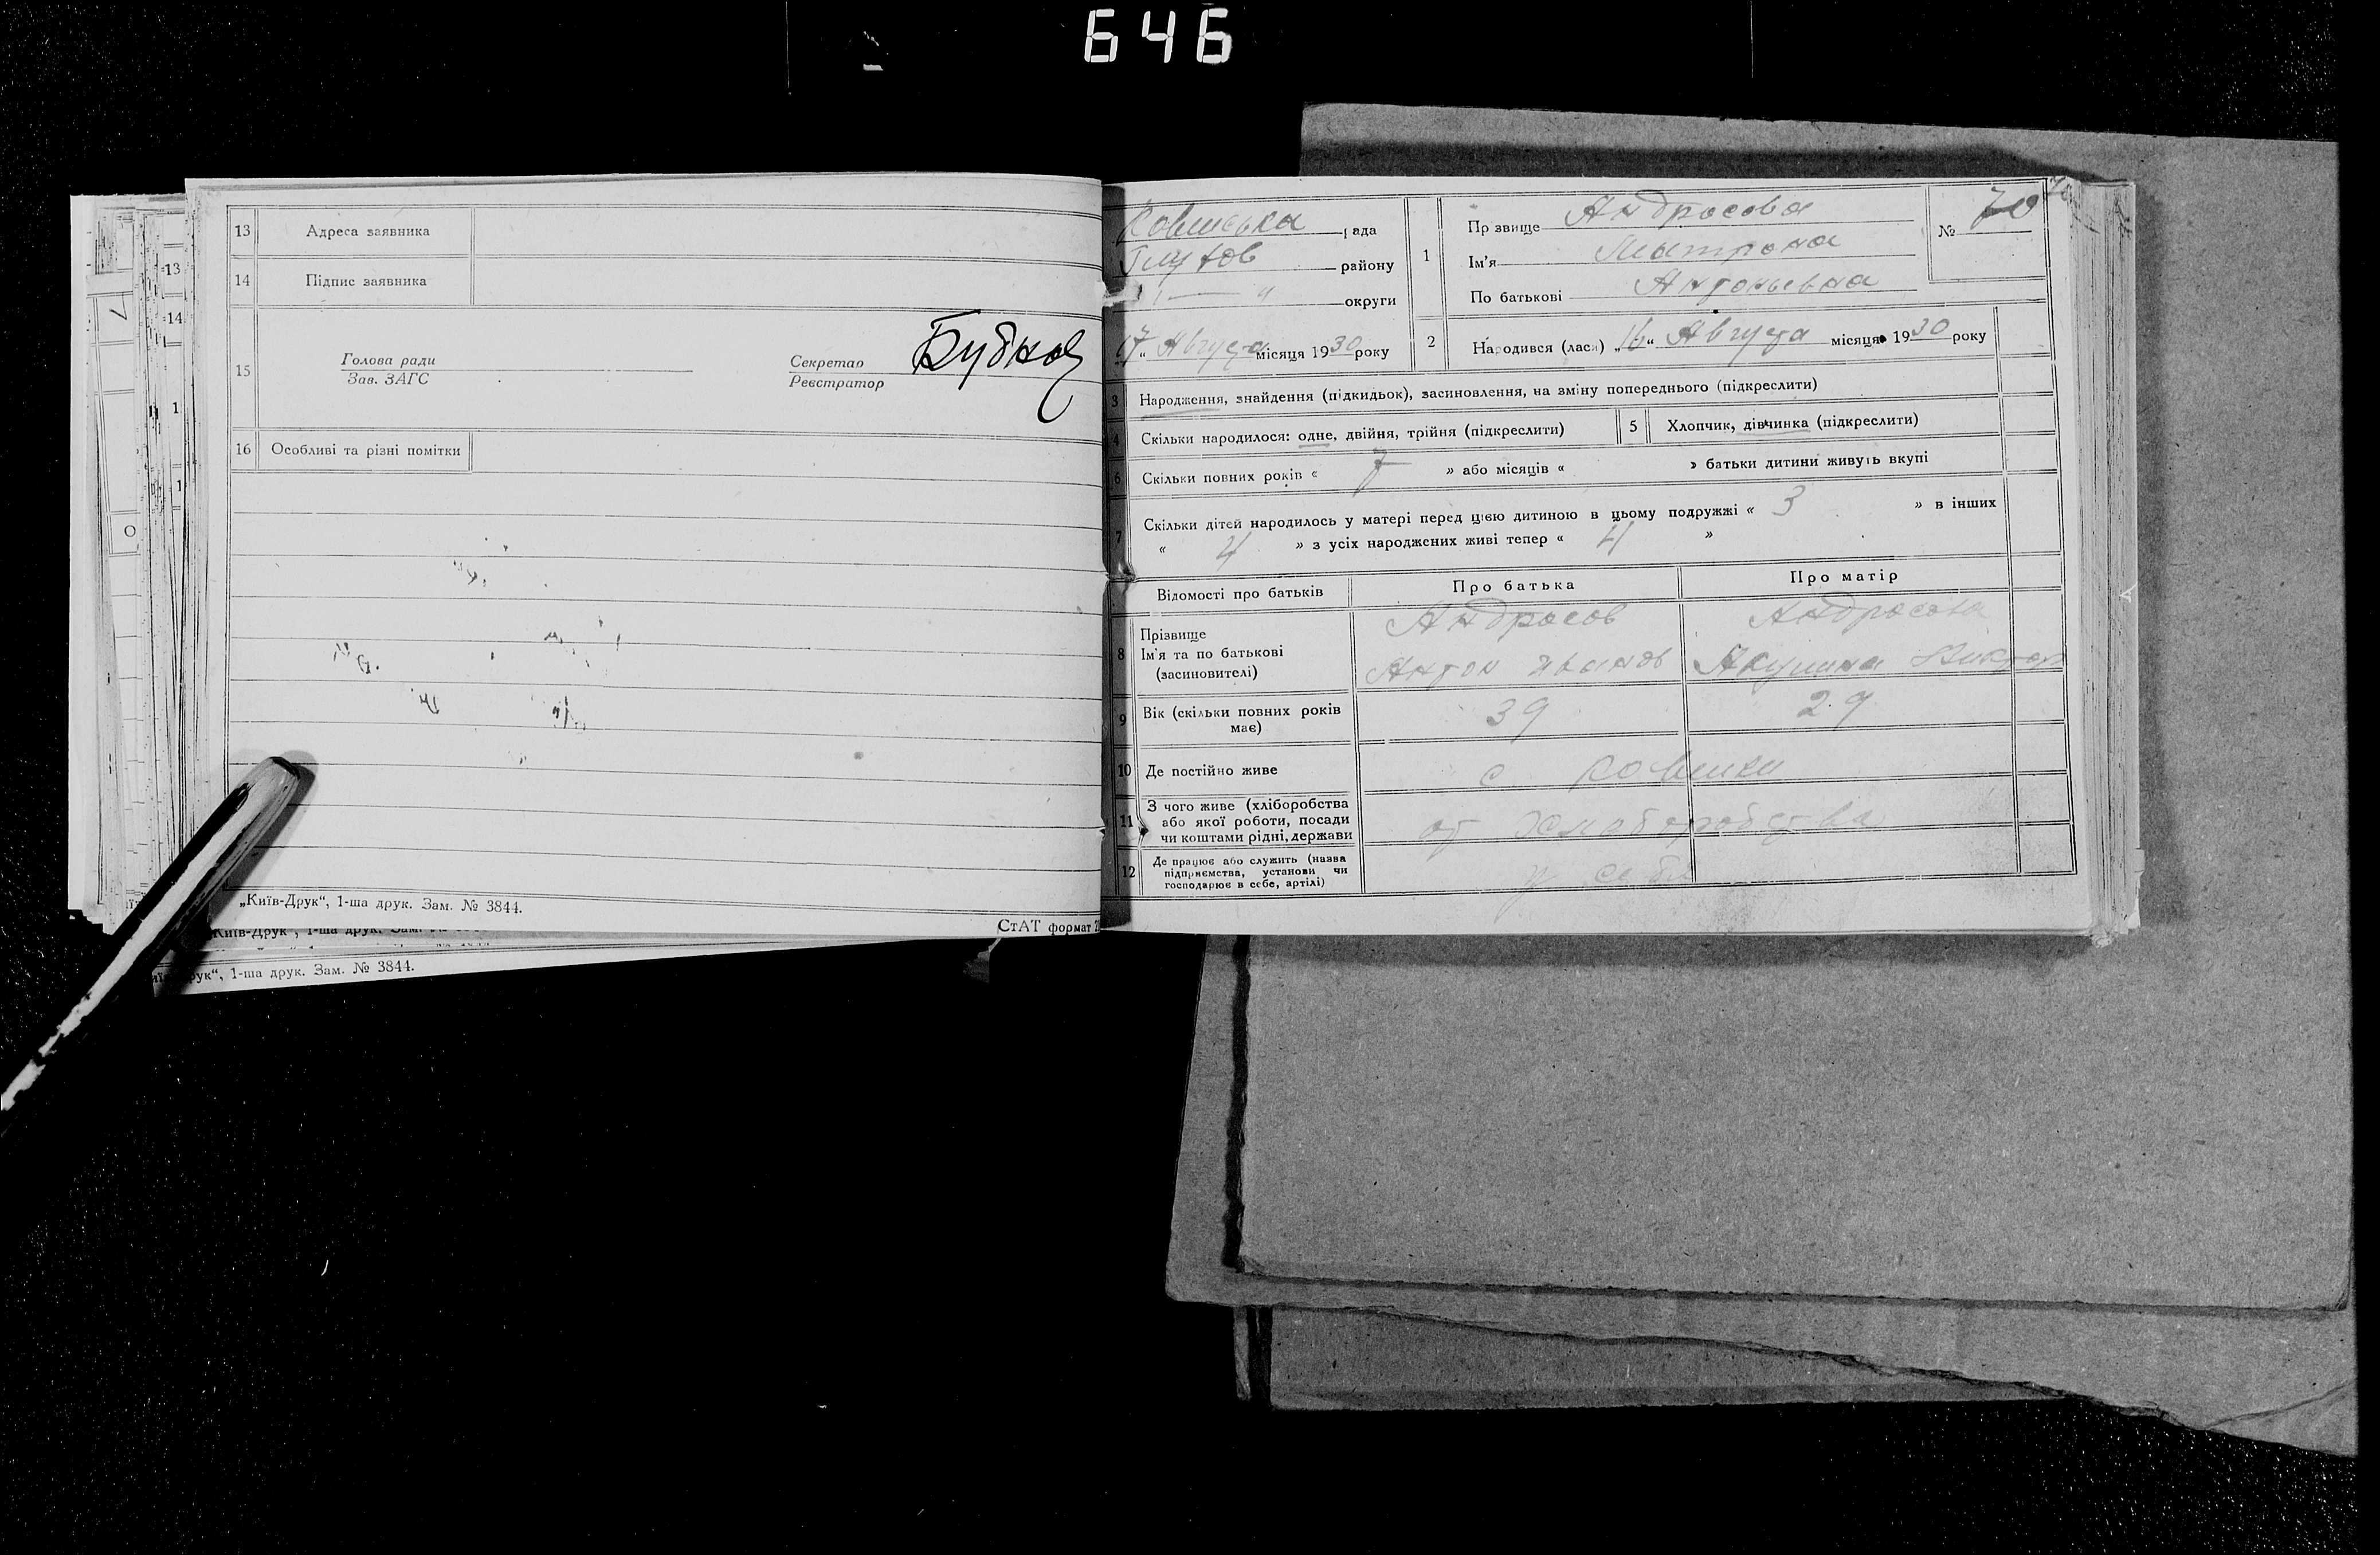 646
13 Адреса заявника
14 Підпис заявника
15 Голова ради
Зав. ЗАГС
Секретар
Реєстратор
16 Особливі та різні помітки
„Київ-Друк“, 1-ша друк. Зам. № 3844.
СтАТ формат
1-ша друк. Зам. № 3844.
рада
району
округи
17 „ Августа місяця 1930 року
1 Прізвище Андросова
Ім'я Матрона
По батькові Антоньевна
№ 70
2 Народився (лася) „16“ Августа місяця 1930 року
3 Народження, знайдення (підкидьок), засиновлення, на зміну попереднього (підкреслити)
4 Скільки народилося: одне, двійня, трійня (підкреслити)
5 Хлопчик, дівчинка (підкреслити)
6 Скільки повних років « 7 » або місяців « » батьки дитини живуть вкупі
7 Скільки дітей народилось у матері перед цією дитиною в цьому подружжі « 3 » в інших
« 4 » з усіх народжених живі тепер « 4 »
Відомості про батьків Про батька Про матір
8 Прізвище
Ім'я та по батькові
(засиновителі)
Андросов
Антон Иванов
Андросова
Акулина Виктор
9 Вік (скільки повних років
має)
39 29
10 Де постійно живе
11 З чого живе (хліборобства
або якої роботи, посади
чи коштами рідні, держави
от хлаборобства
12 Де працює або служить (назва
підприємства, установи чи
господарює в себе, артілі)
у себя